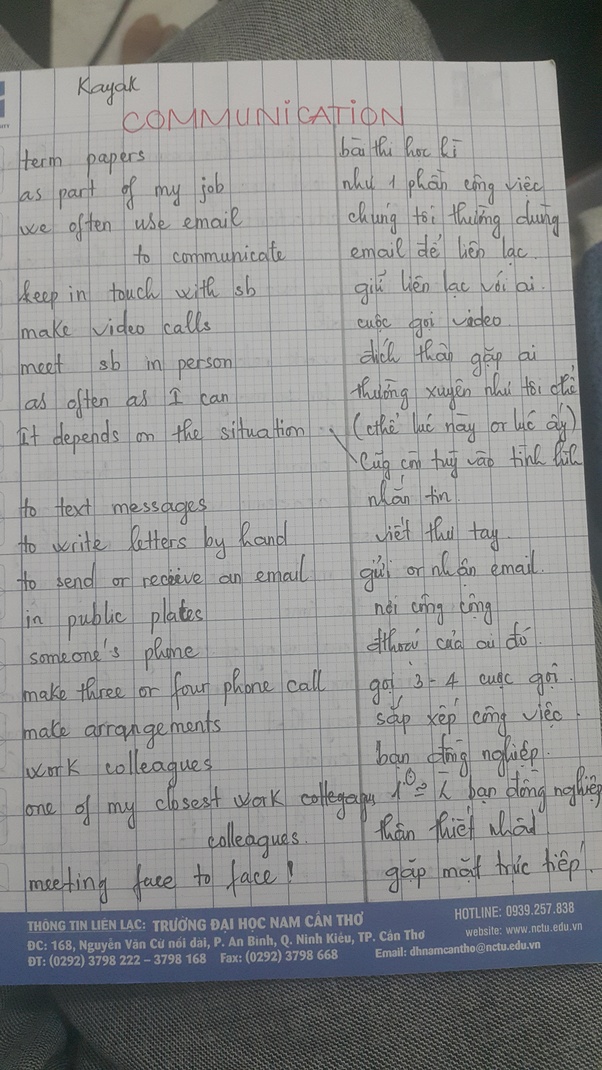 Kayak
COMMUNiCATiON
term papers bài thi học kì
as part of my job như 1 phần công việc
we often use email chúng tôi thường dùng
to communicate email để liên lạc
keep in touch with sb giữ liên lạc với ai.
make video calls cuộc gọi video.
meet sb in person đích thân gặp ai
as often as I can thường xuyên như tôi
It depends on the situation (lúc này or lúc ấy)
Cũg còn tuỳ vào tình
to text messages nhắn tin.
to write letters by hand viết thư tay.
to send or receive an email gửi or nhận email.
in public plates nơi công cộng
someone's phone đthoại của ai đó.
make three or four phone call gọi 3-4 cuộc gọi.
make arrangements sắp xếp công việc.
work colleagues bạn đồng nghiệp.
one of my closest work bạn đồng nghiệp
colleagues. thân thiết nhất
meeting face to face! gặp mặt trực tiếp
THÔNG TIN LIÊN LẠC: TRƯỜNG ĐẠI HỌC NAM CẦN THƠ
ĐC: 168, Nguyễn Văn Cừ nối dài, P. An Bình, Q. Ninh Kiều, TP. Cần Thơ
ĐT: (0292) 3798 222 – 3798 168 Fax: (0292) 3798 668
HOTLINE: 0939.257.838
website: www.nctu.edu.vn
Email: dhnamcantho@nctu.edu.vn